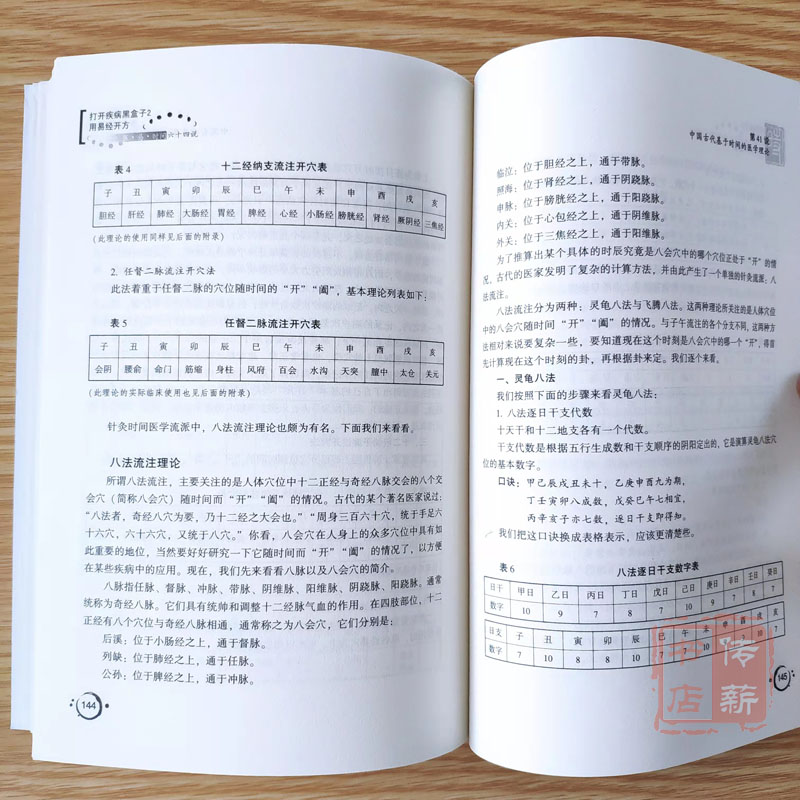 打开疾病黑盒子2
用易经开方
六十四说
表4 十二经纳支流注开穴表
子 丑 寅 卯 辰 巳 午 未 申 酉 戌 亥
胆经 肝经 肺经 大肠经 胃经 脾经 心经 小肠经 膀胱经 肾经 厥阴经 三焦经
(此理论的使用同样见后面的附录)
2. 任督二脉流注开穴法
此法着重于任督二脉的穴位随时间的“开”“阖”,基本理论列表如下:
表5 任督二脉流注开穴表
子 丑 寅 卯 辰 巳 午 未 申 酉 戌 亥
会阴 腰俞 命门 筋缩 身柱 风府 百会 水沟 天突 膻中 太仓 关元
(此理论的实际临床使用也见后面的附录)
针灸时间医学流派中,八法流注理论也颇为有名。下面我们来看看。
八法流注理论
所谓八法流注,主要关注的是人体穴位中十二正经与奇经八脉交会的八个交
会穴(简称八会穴)随时间而“开”“阖”的情况。古代的某个著名医家说过:
“八法者,奇经八穴为要,乃十二经之大会也。”“周身三百六十穴,统于手足六
十六穴,六十六穴,又统于八穴。”你看,八会穴在人身上的众多穴位中具有如
此重要的地位,当然要好好研究一下它随时间而“开”“阖”的情况了,以方便
在某些疾病中的应用。现在,我们先来看看八脉以及八会穴的简介。
八脉指任脉、督脉、冲脉、带脉、阴维脉、阳维脉、阴跷脉、阳跷脉。通常
统称为奇经八脉。它们具有统帅和调整十二经脉气血的作用。在四肢部位,十二
正经有八个穴位与奇经八脉相通,通常称之为八会穴,它们分别是:
后溪:位于小肠经之上,通于督脉。
列缺:位于肺经之上,通于任脉。
公孙:位于脾经之上,通于冲脉。
144
第41说
中国古代基于时间的医学理论
临泣:位于胆经之上,通于带脉。
照海:位于肾经之上,通于阴跷脉。
申脉:位于膀胱经之上,通于阳跷脉。
内关:位于心包经之上,通于阴维脉。
外关:位于三焦经之上,通于阳维脉。
为了推算出某个具体的时辰究竟是八会穴中的哪个穴位正处于“开”的情
况,古代的医家发明了复杂的计算方法,并由此产生了一个单独的针灸流派:八
法流注。
八法流注分为两种:灵龟八法与飞腾八法。这两种理论所关注的是人体穴位
中的八会穴随时间“开”“阖”的情况。与子午流注的各个分支不同,这两种方
法相对来说要复杂一些,要知道现在这个时刻是八会穴中的哪一个“开”,得首
先计算现在这个时刻的卦,再根据卦来定。我们逐个来看。
一、灵龟八法
我们按照下面的步骤来看灵龟八法:
1. 八法逐日干支代数
十天干和十二地支各有一个代数。
干支代数是根据五行生成数和干支顺序的阴阳定出的,它是演算灵龟八法穴
位的基本数字。
口诀:甲己辰戌丑未十,乙庚申酉九为期,
丁壬寅卯八成数,戊癸巳午七相宜,
丙辛亥子亦七数,逐日干支即得知。
我们把这口诀换成表格表示,应该更清楚些。
表6 八法逐日干支数字表
日干 甲日 乙日 丙日 丁日 戊日 己日 庚日 辛日 壬日 癸日
数字 10 9 7 8 7 10 9 7 8 7
日支 子 丑 寅 卯 辰 巳 午 未 申 酉 戌 亥
数字 7 10 8 8 10 7 7 10 9 9 10 7
145
传薪
书店